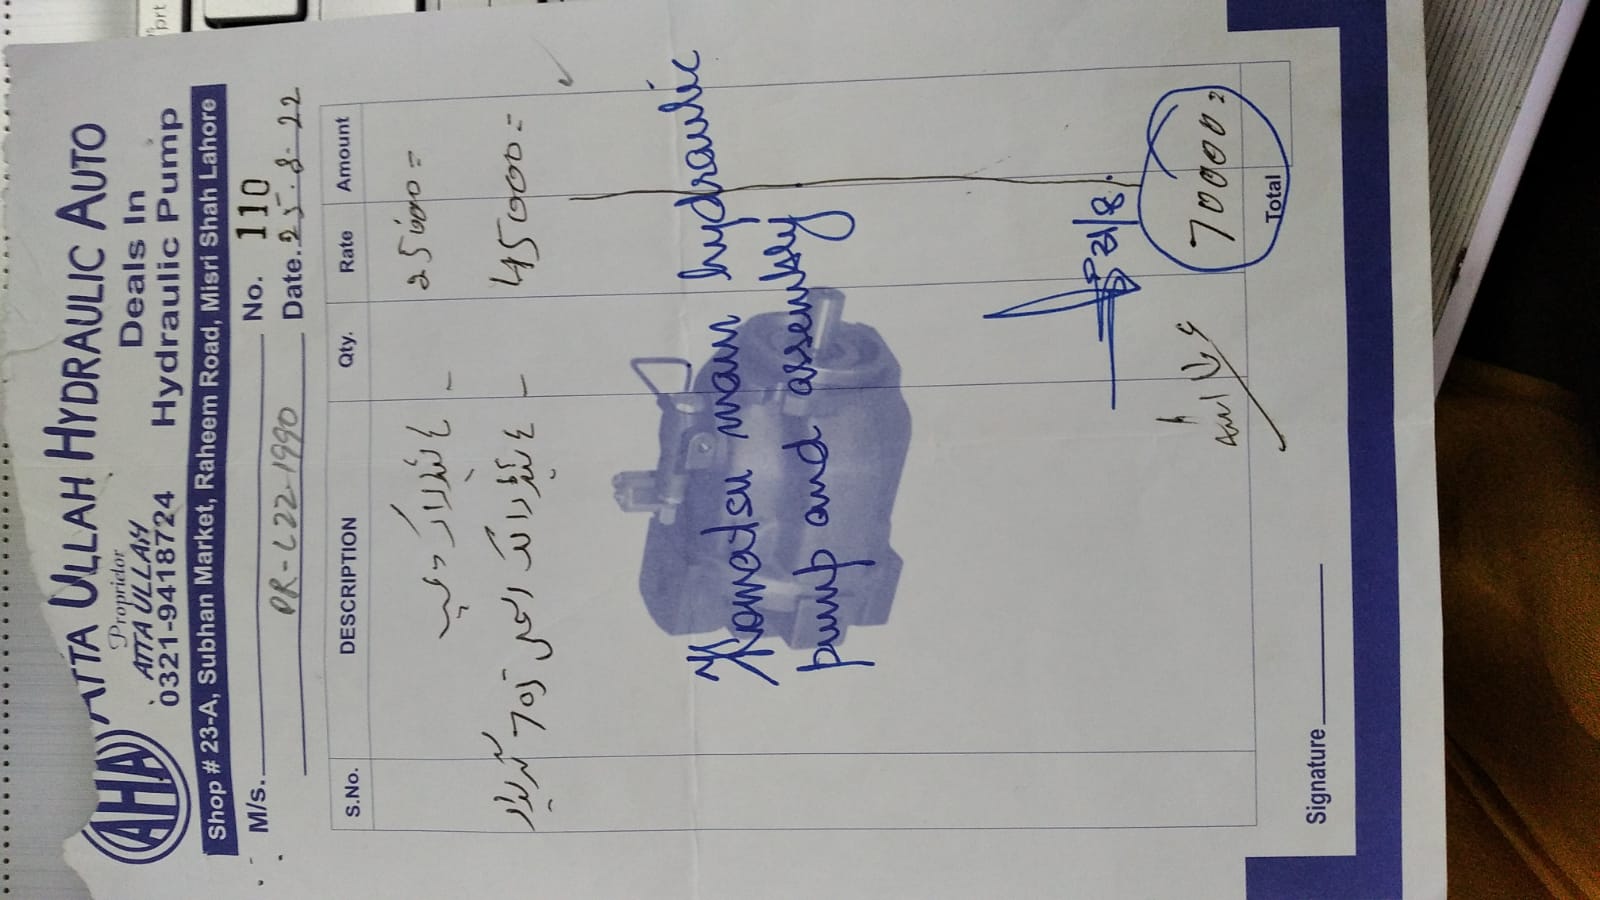 AHA
ATTA ULLAH HYDRAULIC AUTO
Proprietor
ATTA ULLAH
0321-9418724
Deals In
Hydraulic Pump
Shop # 23-A, Subhan Market, Raheem Road, Misri Shah Lahore
M/s. PR-L22-1990
No. 110
Date. 25-8-22
S.No. DESCRIPTION Qty. Rate Amount
25000=
45000=
Komatsu main hydraulic
pump and assembly
31/8
70000
Total
Signature